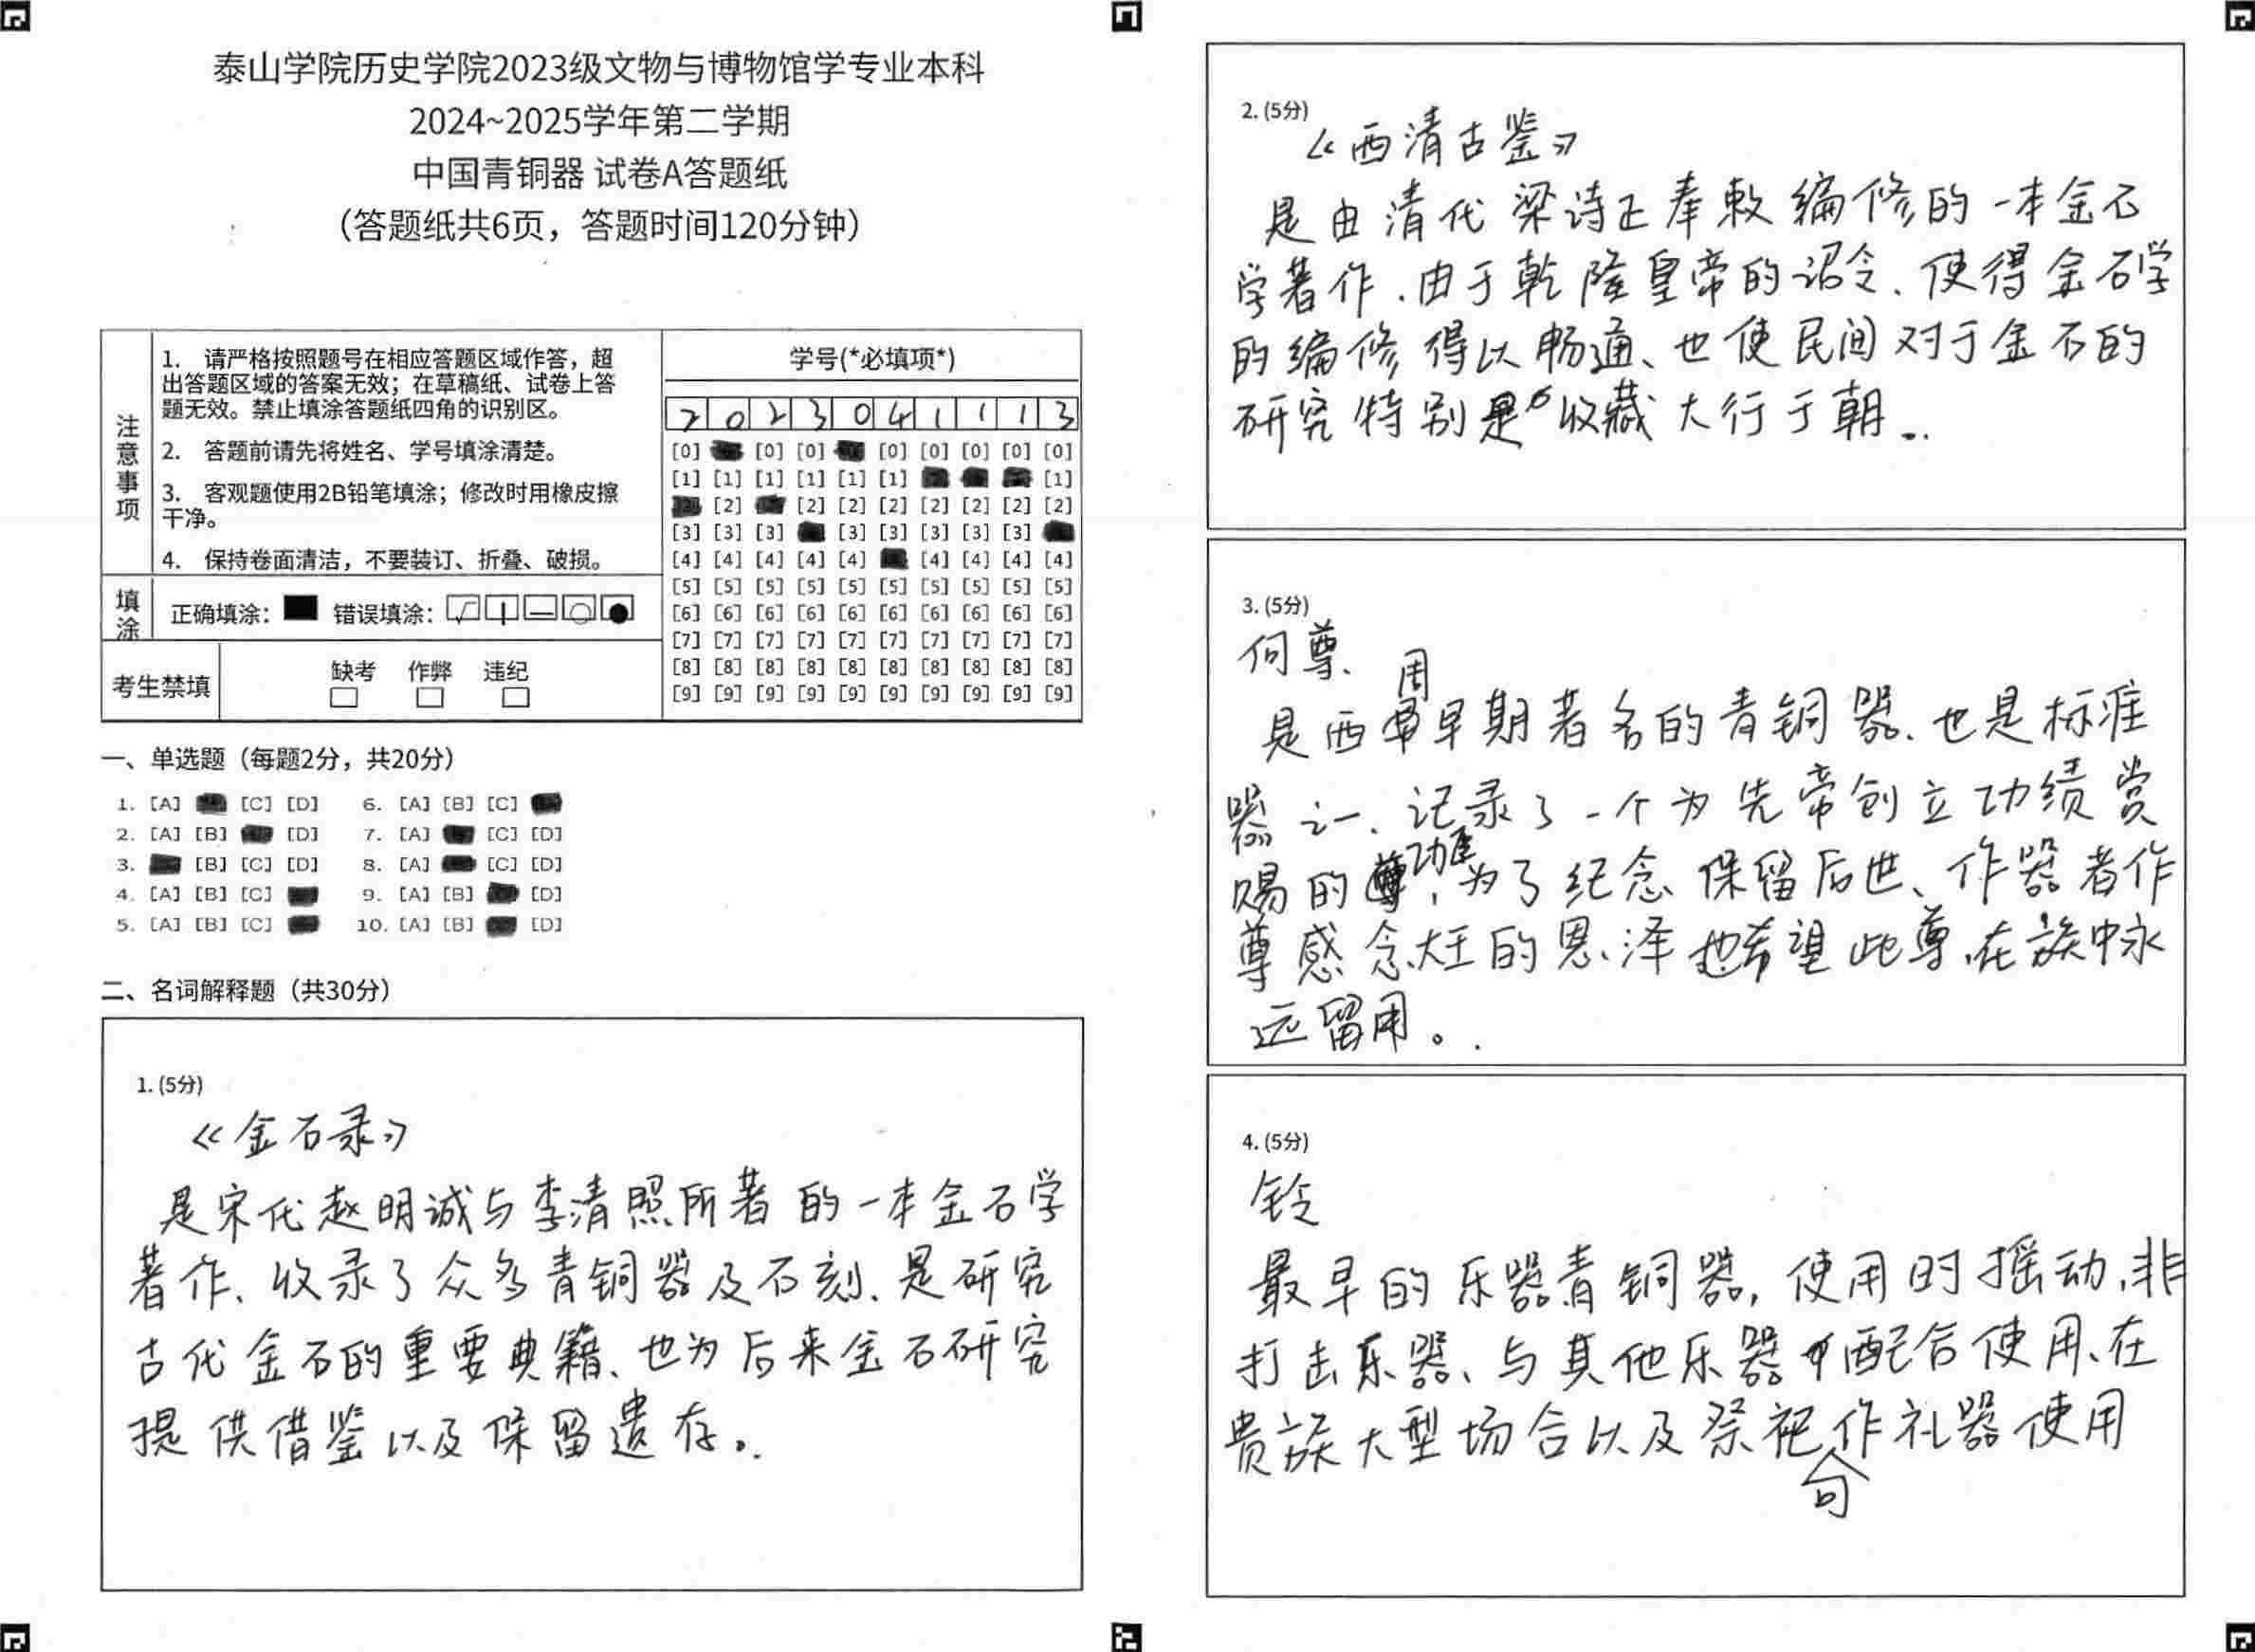 泰山学院历史学院2023级文物与博物馆学专业本科
2024~2025学年第二学期
中国青铜器 试卷A答题纸
（答题纸共6页，答题时间120分钟）
注意事项
1. 请严格按照题号在相应答题区域作答，超
出答题区域的答案无效；在草稿纸、试卷上答
题无效。禁止填涂答题纸四角的识别区。
2. 答题前请先将姓名、学号填涂清楚。
3. 客观题使用2B铅笔填涂；修改时用橡皮擦
干净。
4. 保持卷面清洁，不要装订、折叠、破损。
填涂 正确填涂： 错误填涂：
考生禁填 缺考 作弊 违纪
学号(*必填项*)
2 0 2 3 0 4 1 1 1 3
[0] [0] [0] [0] [0] [0] [0] [0]
[1] [1] [1] [1] [1] [1] [1]
[2] [2] [2] [2] [2] [2] [2] [2]
[3] [3] [3] [3] [3] [3] [3] [3]
[4] [4] [4] [4] [4] [4] [4] [4] [4]
[5] [5] [5] [5] [5] [5] [5] [5] [5] [5]
[6] [6] [6] [6] [6] [6] [6] [6] [6] [6]
[7] [7] [7] [7] [7] [7] [7] [7] [7] [7]
[8] [8] [8] [8] [8] [8] [8] [8] [8] [8]
[9] [9] [9] [9] [9] [9] [9] [9] [9] [9]
一、单选题（每题2分，共20分）
1. [A] [C] [D] 6. [A] [B] [C]
2. [A] [B] [D] 7. [A] [C] [D]
3. [B] [C] [D] 8. [A] [C] [D]
4. [A] [B] [C] 9. [A] [B] [D]
5. [A] [B] [C] 10. [A] [B] [D]
二、名词解释题（共30分）
1. (5分)
《金石录》
是宋代赵明诚与李清照所著的一本金石学
著作、收录了众多青铜器及石刻、是研究
古代金石的重要典籍、也为后来金石研究
提供借鉴以及保留遗存。
2. (5分)
《西清古鉴》
是由清代梁诗正奉敕编修的一本金石
学著作.由于乾隆皇帝的诏令、使得金石学
的编修得以畅通、也使民间对于金石的
研究特别是收藏大行于朝。
3. (5分)
何尊、
是西周早期著名的青铜器、也是标准
器之一、记录了一个为先帝创立功绩赏
赐的功臣,为了纪念保留后世、作器者作
尊感念大王的恩泽也希望此尊在族中永
远留用。
4. (5分)
铃
最早的乐器青铜器,使用时摇动、非
打击乐器、与其他乐器配合使用、在
贵族大型场合以及祭祀会作礼器使用